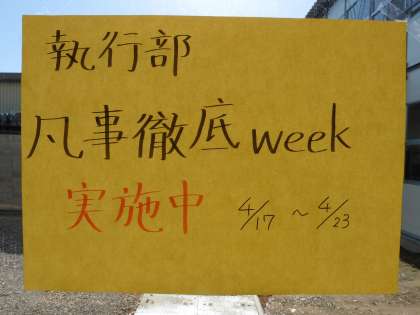 執行部
凡事徹底week
実施中 4/17 ～ 4/23